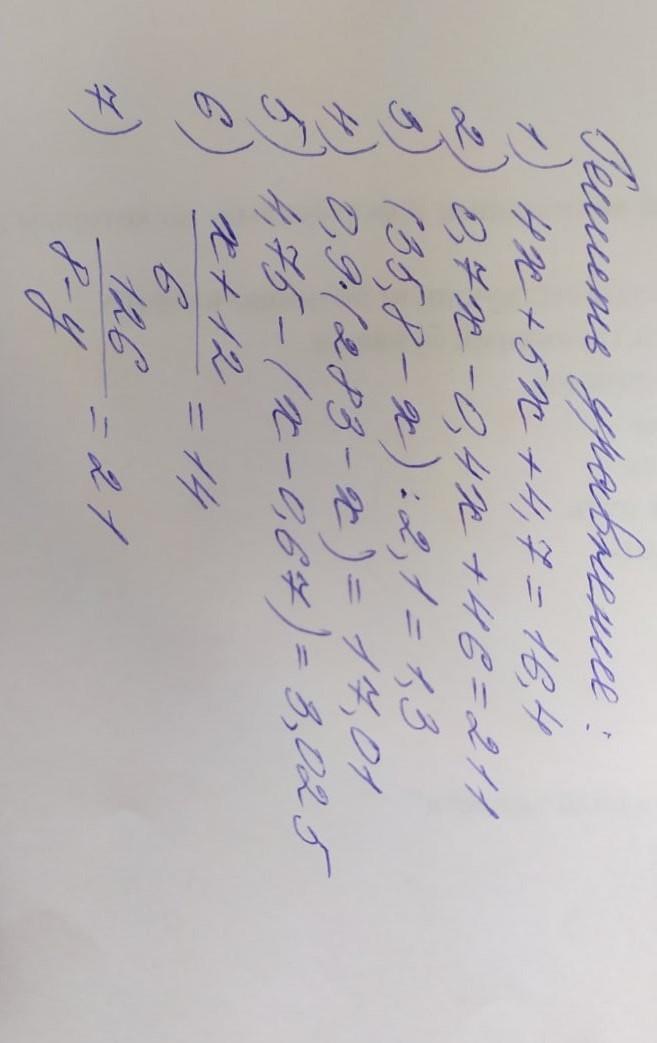 Решить уравнение:
1) 4x + 5x + 4,7 = 16,4
2) 0,7x - 0,4x + 46 = 211
3) (35,8 - x) : 2,1 = 1,3
4) 0,9 · (283 - x) = 17,01
5) 4,75 - (x - 0,67) = 3,025
6) x + 12
6
= 14
7) 126
8 - y
= 21